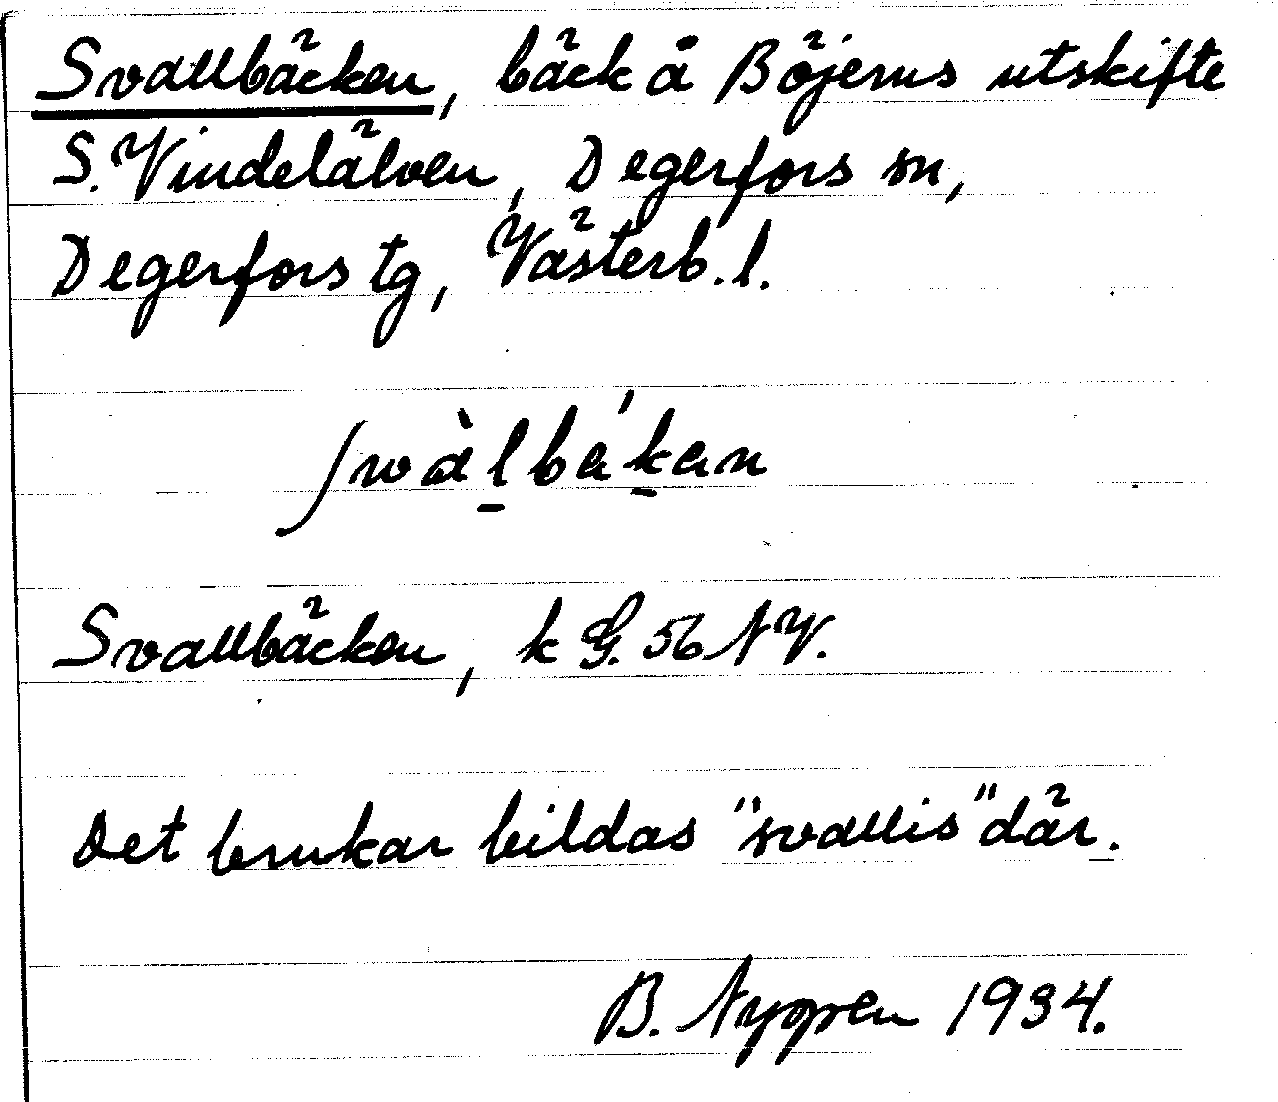 Svallbäcken, bäck å Böjerns utskifte
S. Vindelälven, Degerfors sn,
Degerfors tg, Västerb. l.
Svallbäcken, k G. 56 NV.
Det brukar bildas "svallis" där.
B. Nygren 1934.